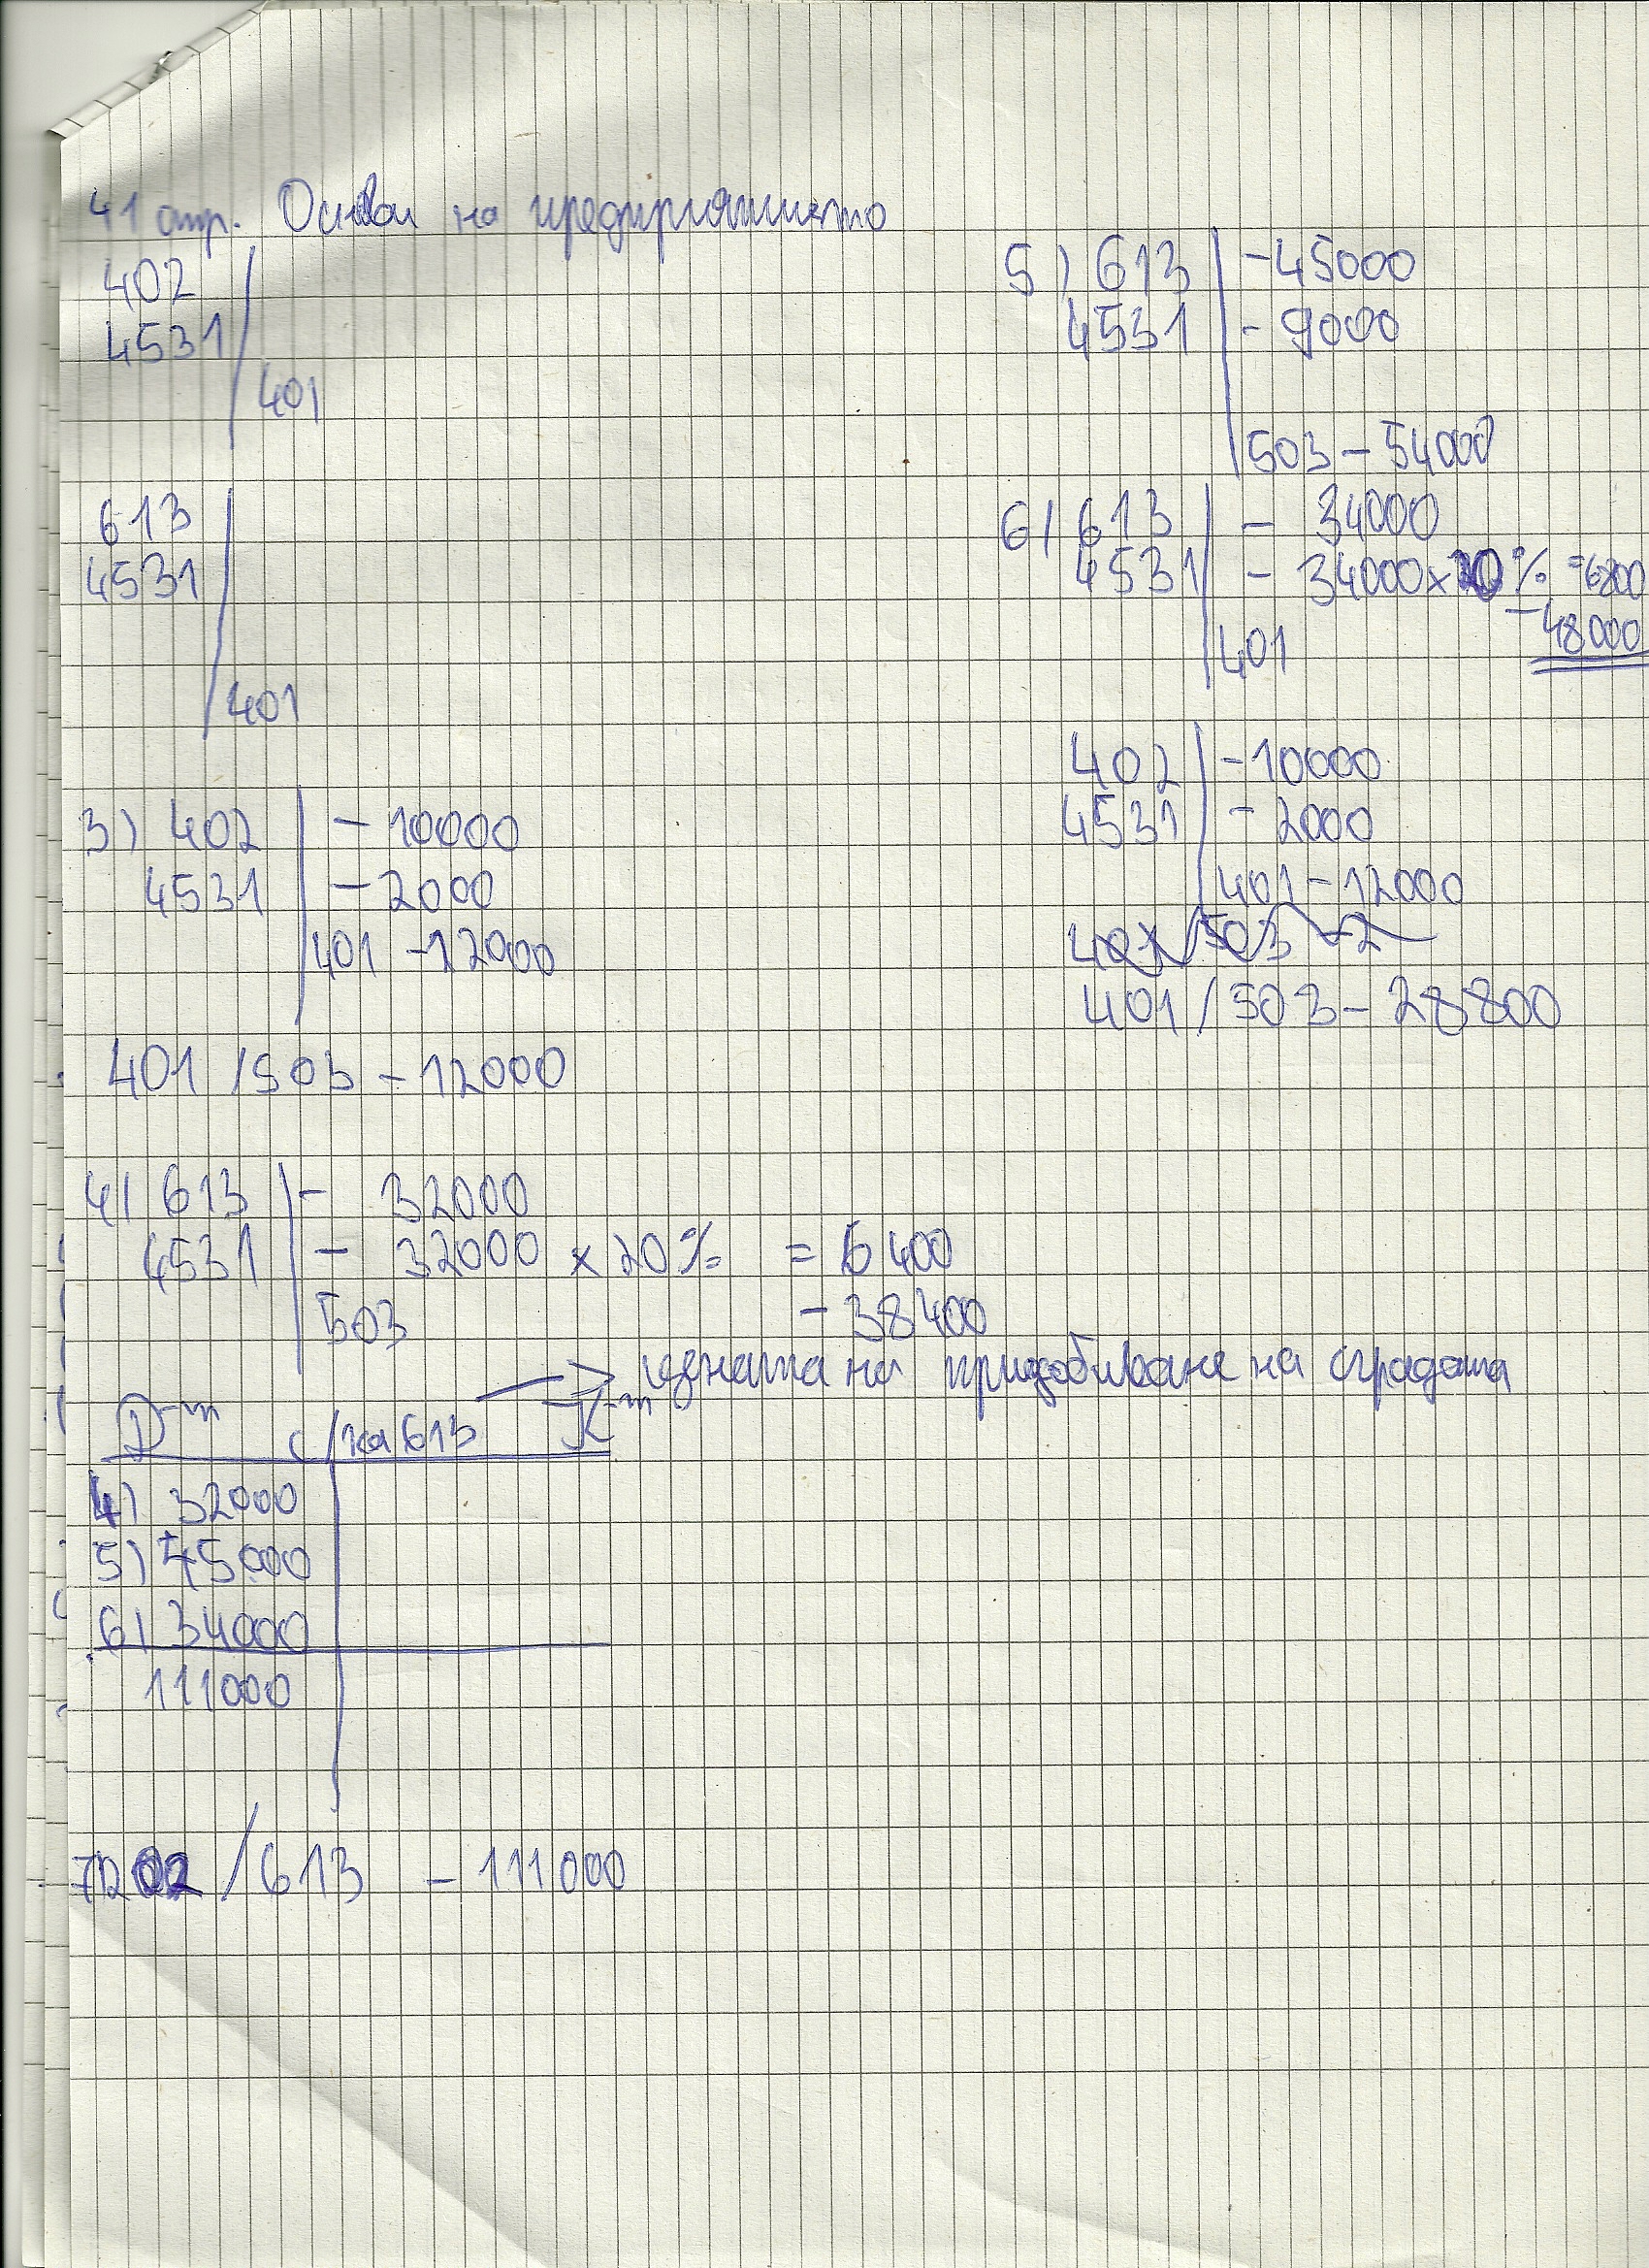 41 стр. Основи на предприятието
402
4531
401
613
4531
401
3) 402 - 10000
4531 - 2000
401 - 12000
401 / 503 - 12000
4) 613 - 32000
4531 - 32000 x 20% = 6400
503 - 38400
→ цената на придобиване на сградата
Д-т с/ка 613 К-т
4) 32000
5) +45000
6) 34000
111000
/ 613 - 111000
5) 613 - 45000
4531 - 9000
503 - 54000
6) 613 - 34000
4531 - 34000 x 20% = 6800
401 - 48000
402 - 10000
4531 - 2000
401 - 12000
401 / 503 - 28800